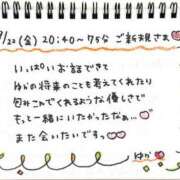 /22(金) 20:40~75分 ご新規さま
いっぱいお話できて
ゆかの将来のことも考えてくれたり
包みこんでくれるような優しさで
もっと一緒にいたかったなぁ…
また会いたいです
ゆか